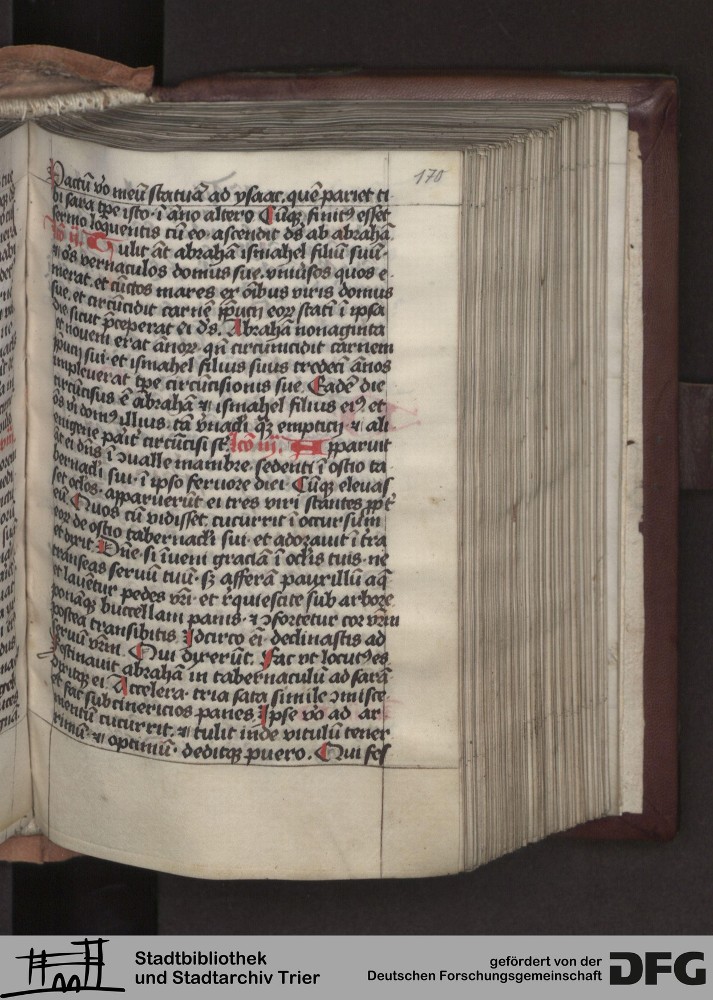 170
Pactū v̊o meū statuā ad ysaac. quē pariet ti
bi sara tp̄e isto · ī āno alterꝰ Cūqꝫ finitꝰ esset
sermo loquentis cū eo · ascendit dꝰs ab abrahā
lc̄o ij. Tulit āt abrahā ismahel filiū suū ·
⁊ oēs vernaculos domus sue. vniuꝰsos quos e
merat. et cūctos mares ex oībus viris domus
sue. et circūcidit carnē p̄pucij eoꝝ stati ī ipsa
die sicut p̄ceperat ei dꝰs. Abrahā nonaginta
et novem erat ānoꝝ. qn̄ circūmcidit carnem
p̄pucij sui · et ismahel filius suus tredecī ānos
impleuerat tp̄e circūcisionis sue. Eadē die
circūcisus ē abrahā ⁊ ismahel filius eiꝰ. et
oēs vi domꝰ illius. tā v̓nacli qꝫ empticij ⁊ ali
enigene pait̓ circūcisi st̄. lc̄o iij. Apparuit
āt ei dn̄s ī ↄualle mambre sedenti ī ostio ta
bernacli sui · ī ipso feruore diei Cūqꝫ eleuas
set oc̄los · apparuerūt ei tres viri stantes ꝓpt̓
eū. Quos cū vidisset. cucurrit ī occursum
eoꝝ de ostio tabernacli sui · et adorauit ī t̓ra
et dixit Dn̄e · si īueni graciā ī oc̄lis tuis · ne
transeas seruū tuū · sꝫ afferā pauxillū aq̄
et lauētur pedes vr̄i · et r̓quiescite sub arbore
ponāqꝫ buccellam panis · ⁊ ↄfortetur cor vr̄m
postea transibitis Idcirco ei̅ declinastis ad
seruū vr̄m. Qui dixerūt. Fac vt locutꝰ es
Festinauit abrahā in tabernaculū ad sarā
dixitqꝫ ei. Accelera · tria sata simile ↄmisce
et fac subcinericios panes Ipse v̊o ad ar
mentū cucurrit. ⁊ tulit inde vitulū tener
rimū · ⁊ optimū · deditqꝫ puero. Qui fes
Stadtbibliothek
und Stadtarchiv Trier
gefördert von der
Deutschen Forschungsgemeinschaft
DFG